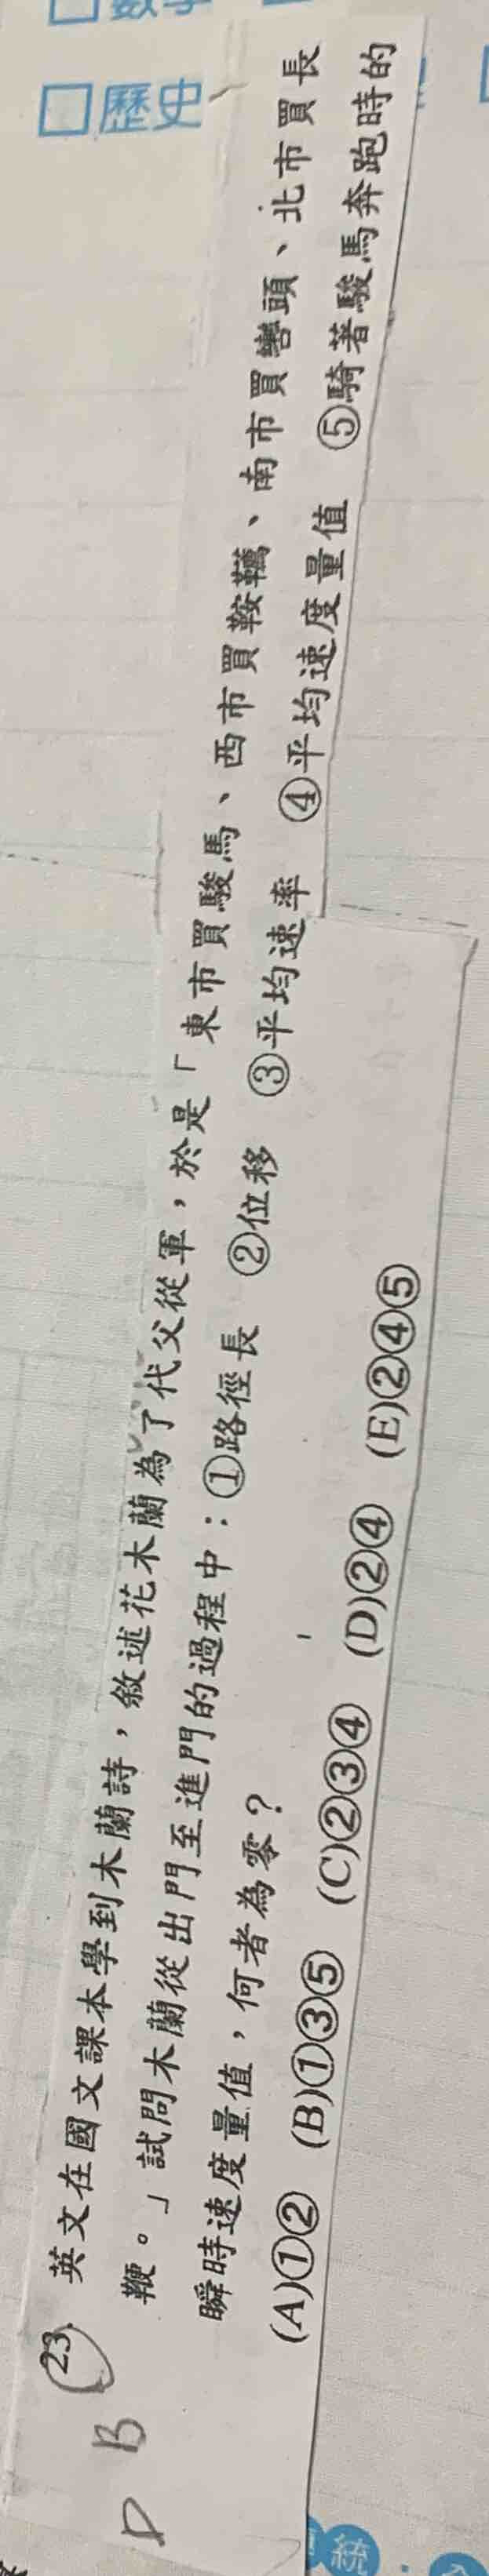 歷史
23. 英文在國文課本學到木蘭詩，敘述花木蘭為了代父從軍，於是「東市買駿馬、西市買鞍韉、南市買轡頭、北市買長
鞭。」試問木蘭從出門至進門的過程中：①路徑長 ②位移 ③平均速率 ④平均速度量值 ⑤騎著駿馬奔跑時的
瞬時速度量值，何者為零？
(A)①② (B)①③⑤ (C)②③④ (D)②④ (E)②④⑤
B
D
統